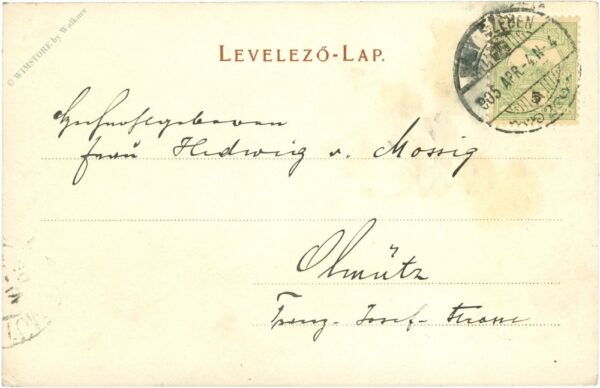 © WIMSTORE by Walkner
LEVELEZŐ-LAP.
SZEBEN
905 APR.-4.N-4
Hochwohlgeboren
Frau Hedwig v. Mossig
Olmütz
Franz-Josef-Strasse